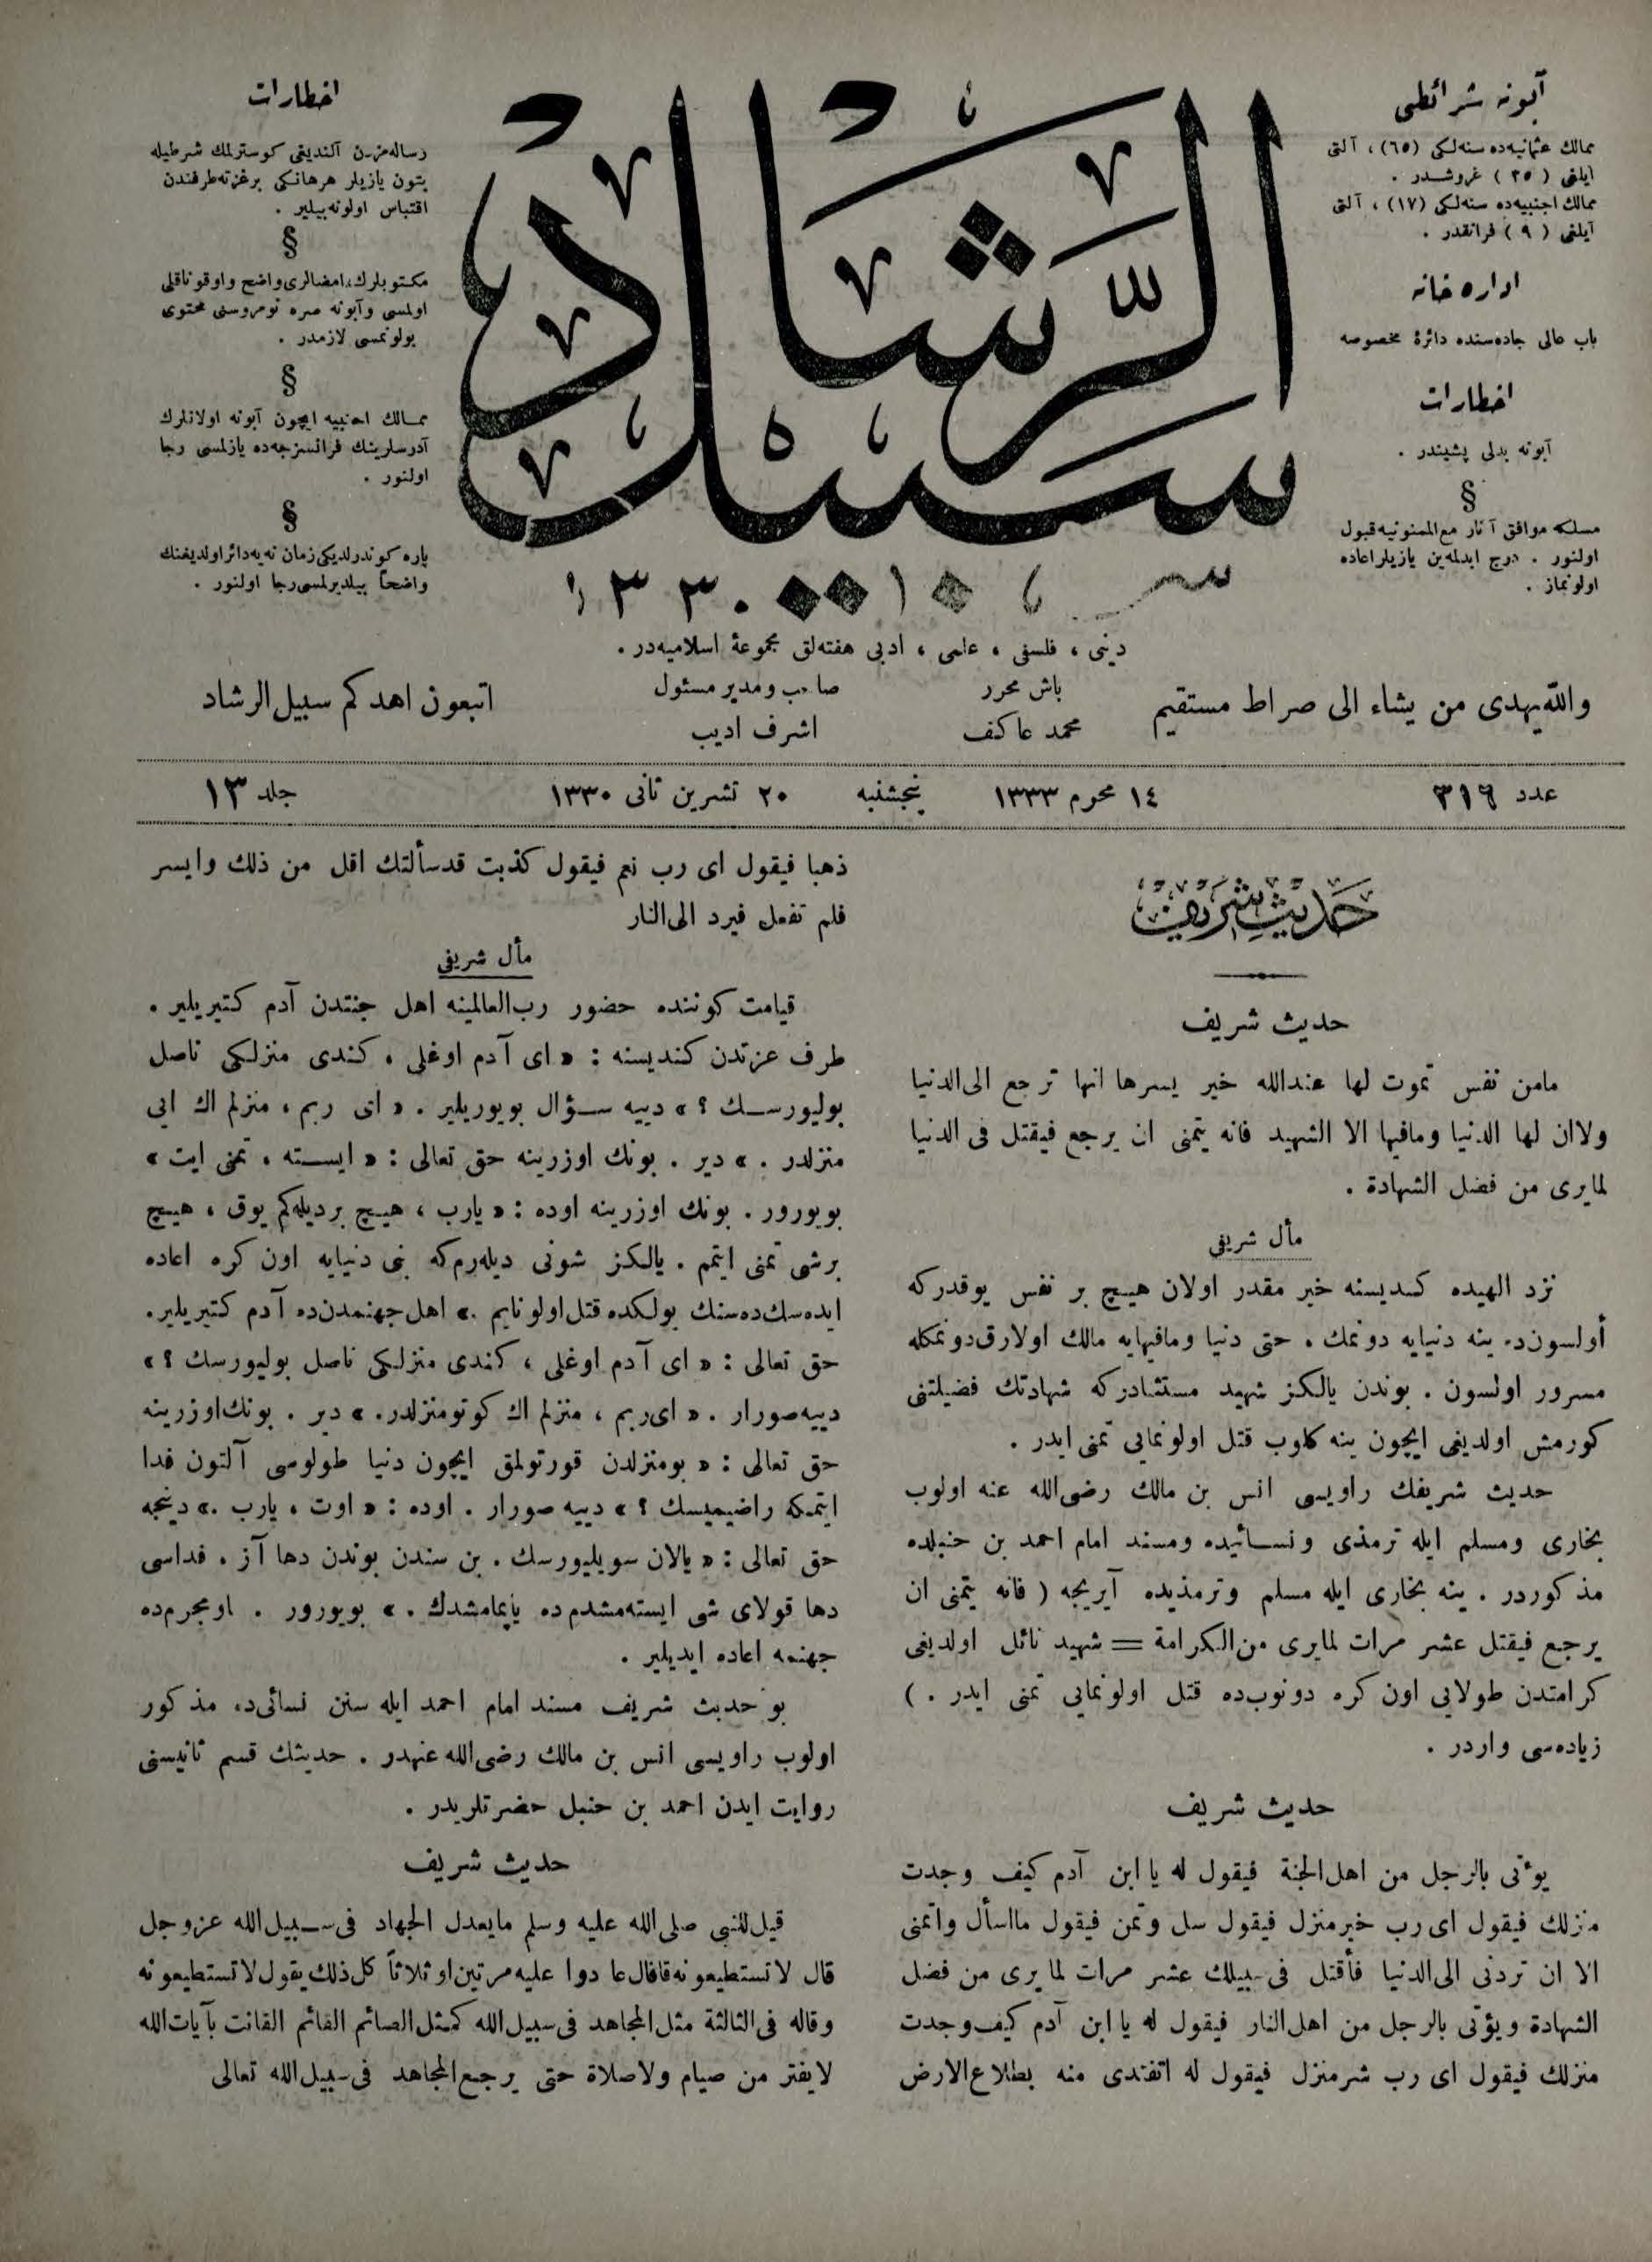 آبونه شرائطی
ممالك عثمانیه‌ده سنه‌لكی (٦٥) ، آلتی
آیلغی ( ٣٥ ) غروشدر .
ممالك اجنبیه‌ده سنه‌لكی (١٧) ، آلتی
آیلغی ( ٩ ) فرانقدر .
اداره خانه
باب عالی جاده‌سنده دائرهٔ مخصوصه
اخطارات
آبونه بدلی پشیندر .
§
مسلكه موافق آثار مع‌الممنونیه قبول
اولنور . درج ایدلمه‌ین یازیلر اعاده
اولونماز .
سبیل الرشاد
١٣٣٠
اخطارات
رساله‌مزدن آلندیغی كوسترلمك شرطیله
بتون یازیلر هرهانكی برغزته‌طرفندن
اقتباس اولونه‌بیلیر .
§
مكتوبلرك، امضالری‌واضح واوقوناقلی
اولمسی وآبونه صره نومروسنی محتوی
بولونمسی لازمدر .
§
ممالك اجنبیه ایچون آبونه اولانلرك
آدرسلرینك فرانسزجه‌ده یازلمسی رجا
اولنور .
§
پاره كوندرلدیكی زمان نه‌یه‌دائر اولدیغنك
واضحاً بیلدیرلمسی رجا اولنور .
دینی ، فلسفی ، علمی ، ادبی هفته‌لق مجموعهٔ اسلامیه‌در .
والله یهدی من یشاء الی صراط مستقیم
باش محرر
محمد عاكف
صاحب ومدیر مسئول
اشرف ادیب
اتبعون اهدكم سبیل‌الرشاد
عدد ٣١٦
١٤ محرم ١٣٣٣
پنجشنبه
٢٠ تشرین ثانی ١٣٣٠
جلد ١٣
حدیث شریف
حدیث شریف
مامن نفس تموت لها عندالله خیر یسرها انها ترجع الی‌الدنیا
ولاان لها الدنیا ومافیها الا الشهید فانه یتمنی ان یرجع فیقتل فی الدنیا
لما یری من فضل الشهادة .
مأل شریفی
نزد الهیده كندیسنه خیر مقدر اولان هیچ بر نفس یوقدركه
أولسون‌ده ینه دنیایه دونمك ، حتی دنیا ومافیهایه مالك اولارق‌دونمكله
مسرور اولسون . بوندن یالكز شهید مستثنادركه شهادتك فضیلتنی
كورمش اولدیغی ایچون ینه كلوب قتل اولونمایی تمنی ایدر .
حدیث شریفك راویسی انس بن مالك رضی‌الله عنه اولوب
بخاری ومسلم ایله ترمذی ونسائیده ومسند امام احمد بن حنبلده
مذكوردر . ینه بخاری ایله مسلم وترمذیده آیریجه ( فانه یتمنی ان
یرجع فیقتل عشر مرات لما یری من‌الكرامة = شهید نائل اولدیغی
كرامتدن طولایی اون كره دونوب‌ده قتل اولونمایی تمنی ایدر . )
زیاده‌سی واردر .
حدیث شریف
یوءتی بالرجل من اهل‌الجنة فیقول له یا ابن آدم كیف وجدت
منزلك فیقول ای رب خیرمنزل فیقول سل وتمن فیقول مااسأل واتمنی
الا ان تردنی الی‌الدنیا فأقتل فی سبیلك عشر مرات لما یری من فضل
الشهادة ویؤتی بالرجل من اهل‌النار فیقول له یا ابن آدم كیف‌وجدت
منزلك فیقول ای رب شرمنزل فیقول له اتفتدی منه بطلاع‌الارض
ذهبا فیقول ای رب نعم فیقول كذبت قدسألتك اقل من ذلك وایسر
فلم تفعل فیرد الی‌النار
مأل شریفی
قیامت كوننده حضور رب‌العالمینه اهل جنتدن آدم كتیریلیر .
طرف عزتدن كندیسنه : « ای آدم اوغلی ، كندی منزلكی ناصل
بولیورسك ؟ » دییه سؤال بویوریلیر . « ای ربم ، منزلم اك ایی
منزلدر . » دیر . بونك اوزرینه حق تعالی : « ایسته ، تمنی ایت »
بویورور . بونك اوزرینه اوده : « یارب ، هیچ بردیله‌كم یوق ، هیچ
برشی تمنی ایتمم . یالكز شونی دیله‌رم‌كه بنی دنیایه اون كره اعاده
ایده‌سك‌ده‌سنك یولكده قتل‌اولونایم .» اهل‌جهنمدن‌ده آدم كتیریلیر.
حق تعالی : « ای آدم اوغلی ، كندی منزلكی ناصل بولیورسك ؟ »
دییه‌صورار . « ای‌ربم ، منزلم اك كوتومنزلدر. » دیر . بونك‌اوزرینه
حق تعالی : « بومنزلدن قورتولمق ایچون دنیا طولوسی آلتون فدا
ایتمكه راضیمیسك ؟ » دییه صورار . اوده : « اوت ، یارب .» دینجه
حق تعالی : « یالان سویلیورسك . بن سندن بوندن دها آز ، فداسی
دها قولای شی ایسته‌مشدم‌ده یاپمامشدك . » بویورور . اومجرم‌ده
جهنمه اعاده ایدیلیر .
بو حدیث شریف مسند امام احمد ایله سنن نسائی‌ده مذكور
اولوب راویسی انس بن مالك رضی‌الله عنهدر . حدیثك قسم ثانیسنی
روایت ایدن احمد بن حنبل حضرتلریدر .
حدیث شریف
قیل‌للنبی صلی‌الله علیه وسلم مایعدل الجهاد فی‌سبیل‌الله عزوجل
قال لاتستطیعونه‌قال‌فاعادوا علیه‌مرتین‌اوثلاثاً كل‌ذلك‌یقول‌لاتستطیعونه
وقاله فی‌الثالثة مثل‌المجاهد فی‌سبیل‌الله كمثل‌الصائم القائم القانت بآیات‌الله
لایفتر من صیام ولاصلاة حتی یرجع‌المجاهد فی‌سبیل‌الله تعالی